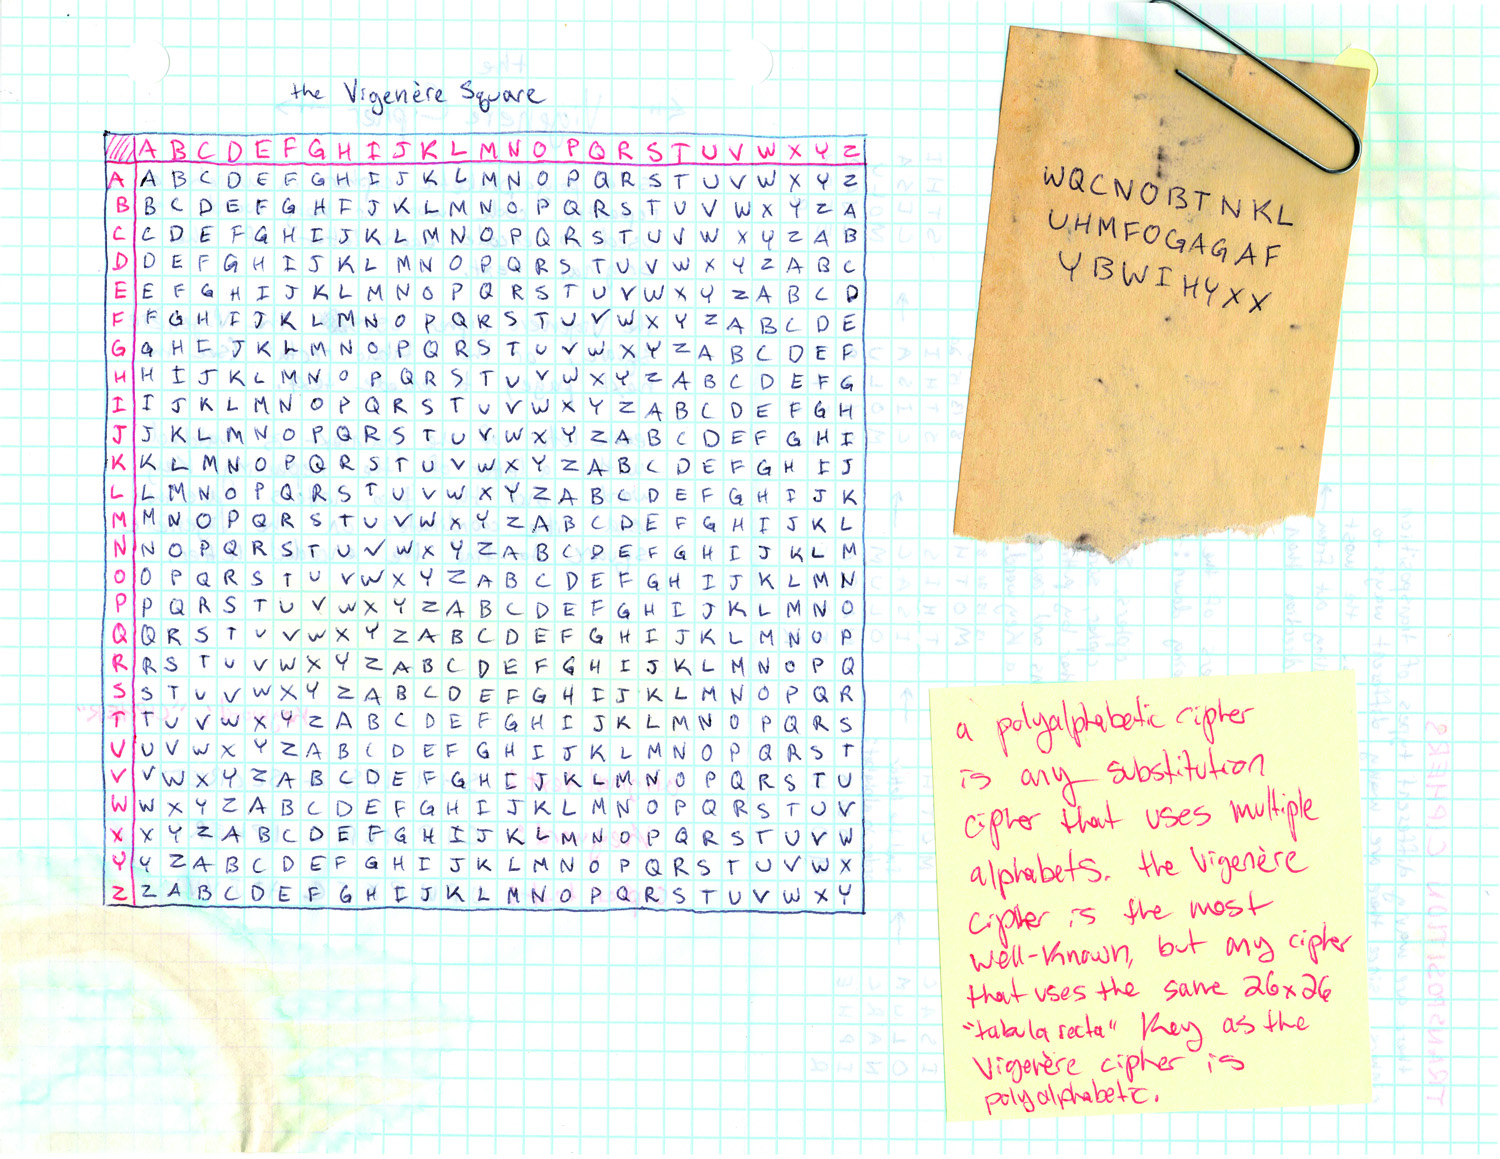 the Vigenère Square
A B C D E F G H I J K L M N O P Q R S T U V W X Y Z
A A B C D E F G H I J K L M N O P Q R S T U V W X Y Z
B B C D E F G H I J K L M N O P Q R S T U V W X Y Z A
C C D E F G H I J K L M N O P Q R S T U V W X Y Z A B
D D E F G H I J K L M N O P Q R S T U V W X Y Z A B C
E E F G H I J K L M N O P Q R S T U V W X Y Z A B C D
F F G H I J K L M N O P Q R S T U V W X Y Z A B C D E
G G H I J K L M N O P Q R S T U V W X Y Z A B C D E F
H H I J K L M N O P Q R S T U V W X Y Z A B C D E F G
I I J K L M N O P Q R S T U V W X Y Z A B C D E F G H
J J K L M N O P Q R S T U V W X Y Z A B C D E F G H I
K K L M N O P Q R S T U V W X Y Z A B C D E F G H I J
L L M N O P Q R S T U V W X Y Z A B C D E F G H I J K
M M N O P Q R S T U V W X Y Z A B C D E F G H I J K L
N N O P Q R S T U V W X Y Z A B C D E F G H I J K L M
O O P Q R S T U V W X Y Z A B C D E F G H I J K L M N
P P Q R S T U V W X Y Z A B C D E F G H I J K L M N O
Q Q R S T U V W X Y Z A B C D E F G H I J K L M N O P
R R S T U V W X Y Z A B C D E F G H I J K L M N O P Q
S S T U V W X Y Z A B C D E F G H I J K L M N O P Q R
T T U V W X Y Z A B C D E F G H I J K L M N O P Q R S
U U V W X Y Z A B C D E F G H I J K L M N O P Q R S T
V V W X Y Z A B C D E F G H I J K L M N O P Q R S T U
W W X Y Z A B C D E F G H I J K L M N O P Q R S T U V
X X Y Z A B C D E F G H I J K L M N O P Q R S T U V W
Y Y Z A B C D E F G H I J K L M N O P Q R S T U V W X
Z Z A B C D E F G H I J K L M N O P Q R S T U V W X Y
WQCNOBTNKL
UHMFOGAGAF
YBWIHYXX
a polyalphabetic cipher
is any substitution
cipher that uses multiple
alphabets. the Vigenère
cipher is the most
well-known, but any cipher
that uses the same 26x26
"tabula recta" key as the
Vigenère cipher is
polyalphabetic.